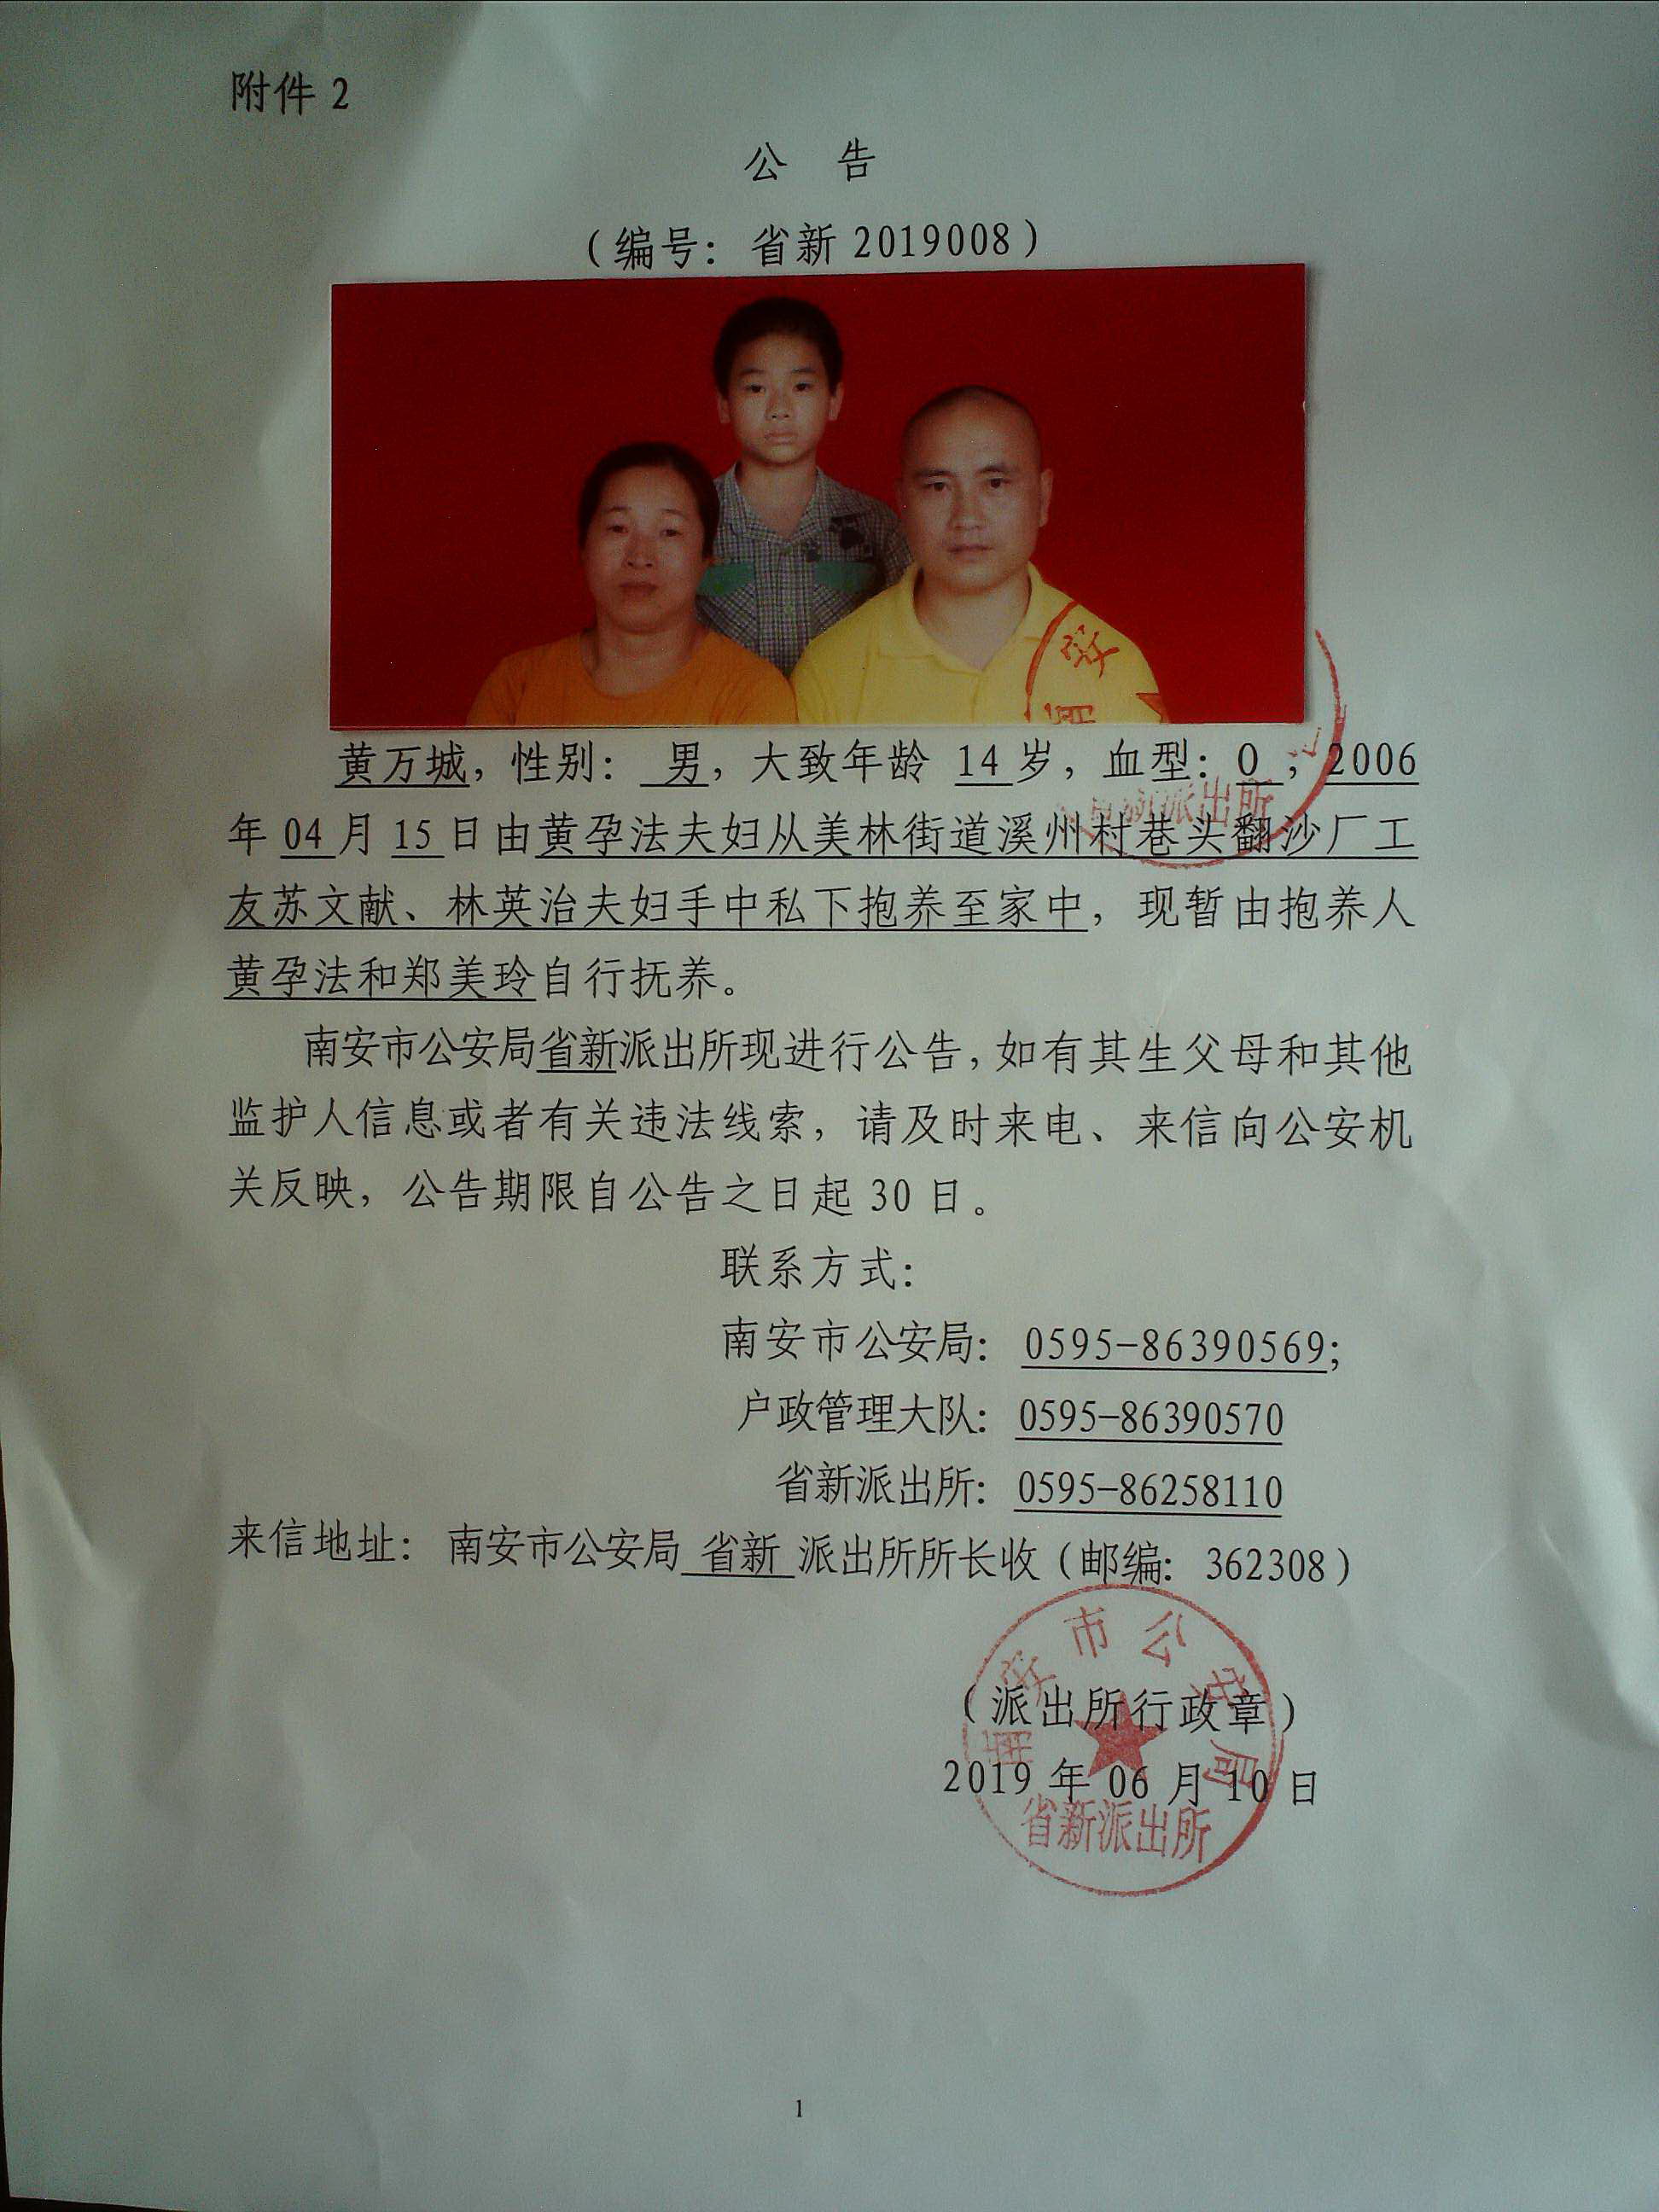 附件 2
公 告
（编号：省新 2019008）
黄万城，性别： 男，大致年龄 14 岁，血型：O ，2006
年 04 月 15 日由黄孕法夫妇从美林街道溪州村巷头翻沙厂工
友苏文献、林英治夫妇手中私下抱养至家中，现暂由抱养人
黄孕法和郑美玲自行抚养。
南安市公安局省新派出所现进行公告，如有其生父母和其他
监护人信息或者有关违法线索，请及时来电、来信向公安机
关反映，公告期限自公告之日起 30 日。
联系方式：
南安市公安局： 0595-86390569;
户政管理大队： 0595-86390570
省新派出所： 0595-86258110
来信地址： 南安市公安局 省新 派出所所长收（邮编： 362308）
（派出所行政章）
2019 年 06 月 10 日
南安市公安局
省新派出所
1